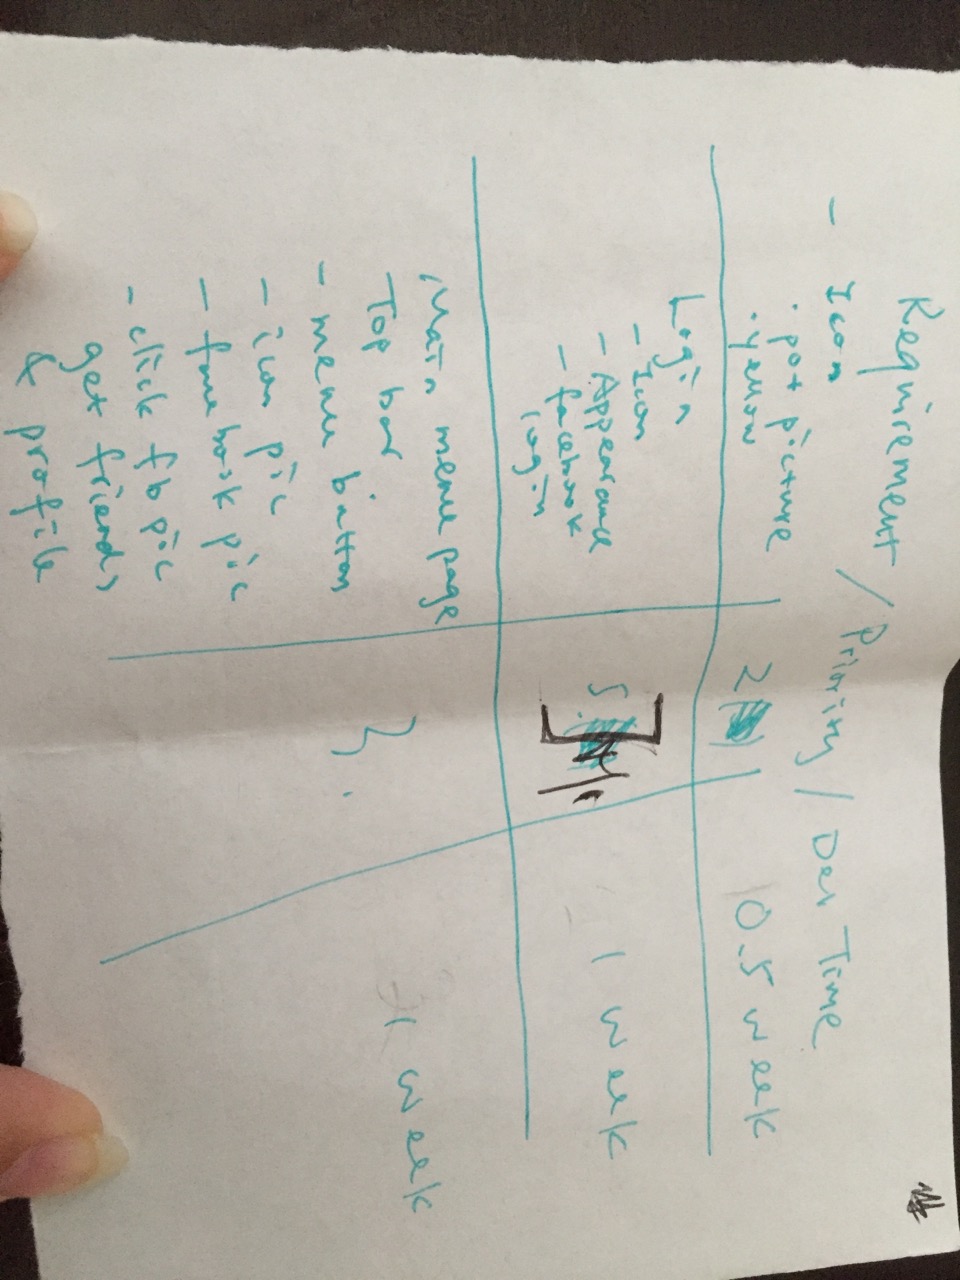 Requirement / Priority / Dev Time
- Icon
. pot picture
. yellow
2
0.5 week
Login
- Icon
- Appearance
- facebook
login
5
1 week
Main menu page
Top bar
- menu button
- icon pic
- facebook pic
- click fb pic
get friends
& profile
3.
1 week